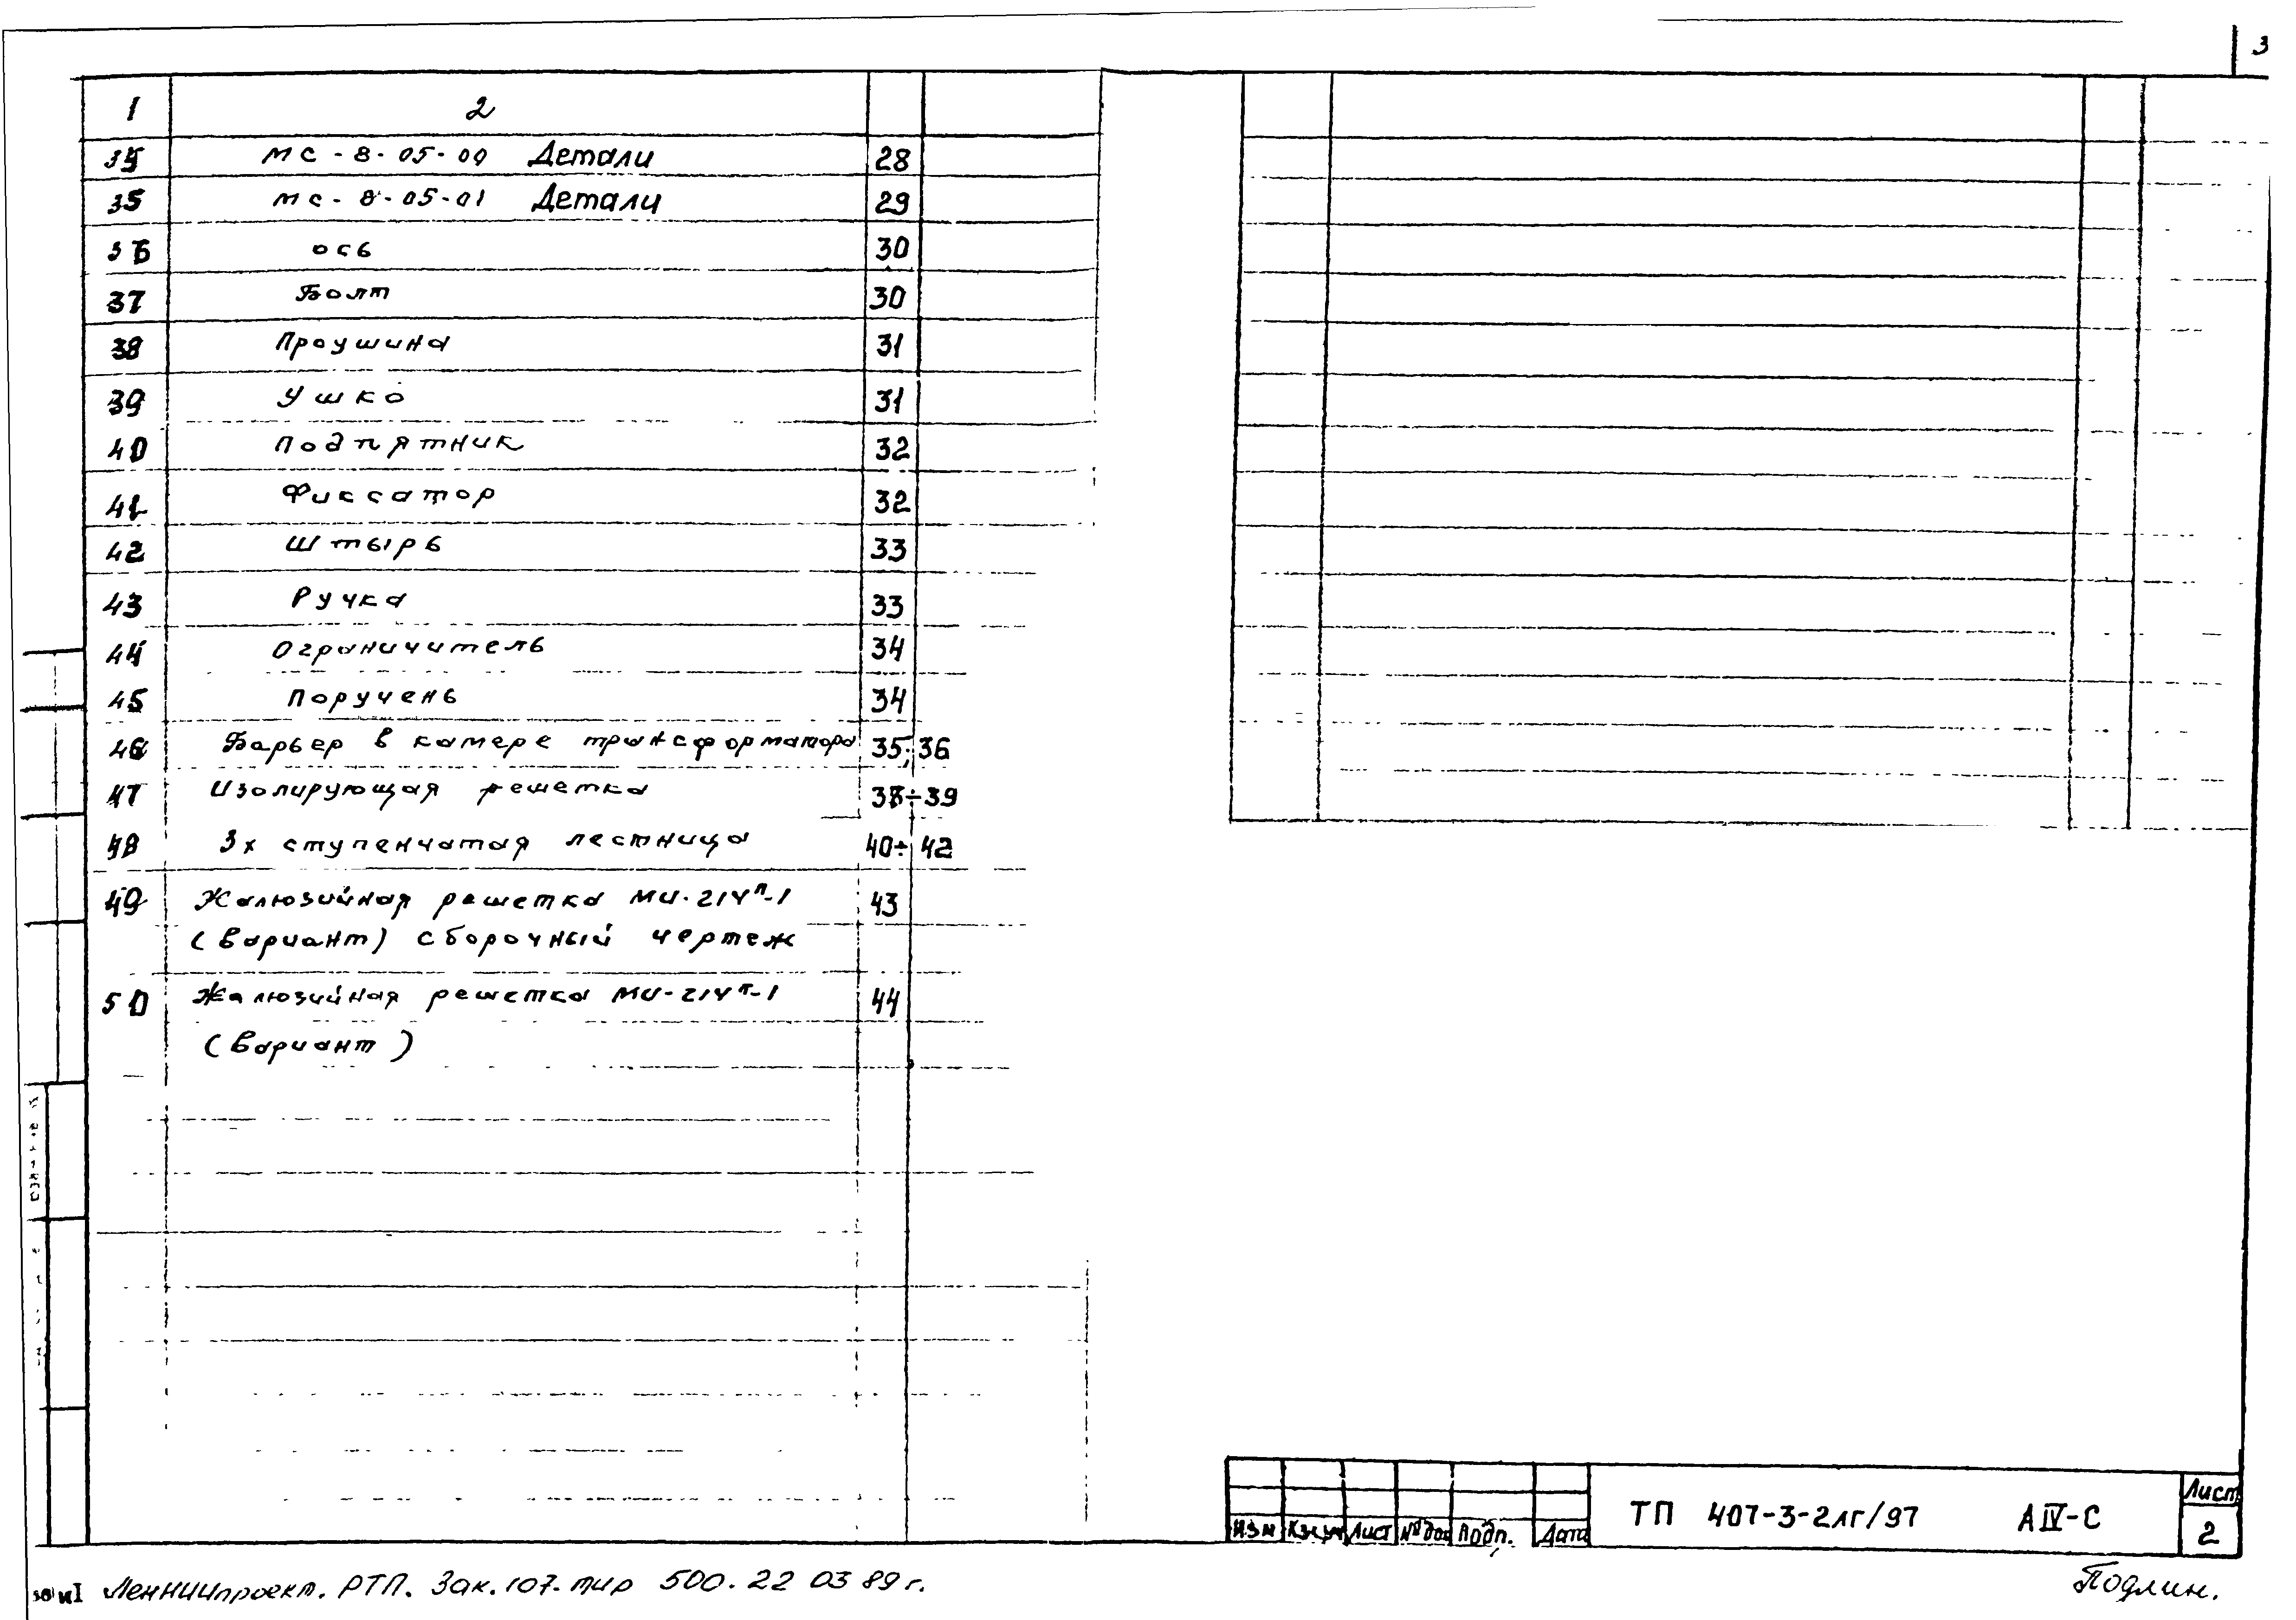 3
1 2
35 МС-8-05-00 Детали 28
35 МС-8-05-01 Детали 29
36 ось 30
37 Болт 30
38 Проушина 31
39 Ушко 31
40 подпятник 32
41 Фиксатор 32
42 Штырь 33
43 Ручка 33
44 Ограничитель 34
45 поручень 34
46 Барьер в камере трансформатора 35; 36
47 Изолирующая решетка 38÷39
48 3х ступенчатая лестница 40÷42
49 Жалюзийная решетка МИ-214п-1 43
(вариант) сборочный чертеж
50 Жалюзийная решетка МИ-214п-1 44
(вариант)
Изм Кэлуч Лист №док Подп. Дата
ТП 407-3-2лг/97 АIV-С
Лист
2
ЛенНИИпроект. РТП. Зак. 107. тир 500. 22 03 89 г.
Подлин.